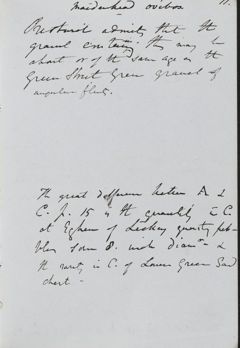 11.
Maidenhead ovibos
Prestwich admits that the
gravel containing this may be
about or of the same age as the
Green Street Green gravel of
angular flints.
The great difference between A &
C. p. 15 is the quantity in C.
at Egham of Lickey quartz peb-
bles some 8. inch diamr &
the rarity in C. of Lower Green Sand
chert -